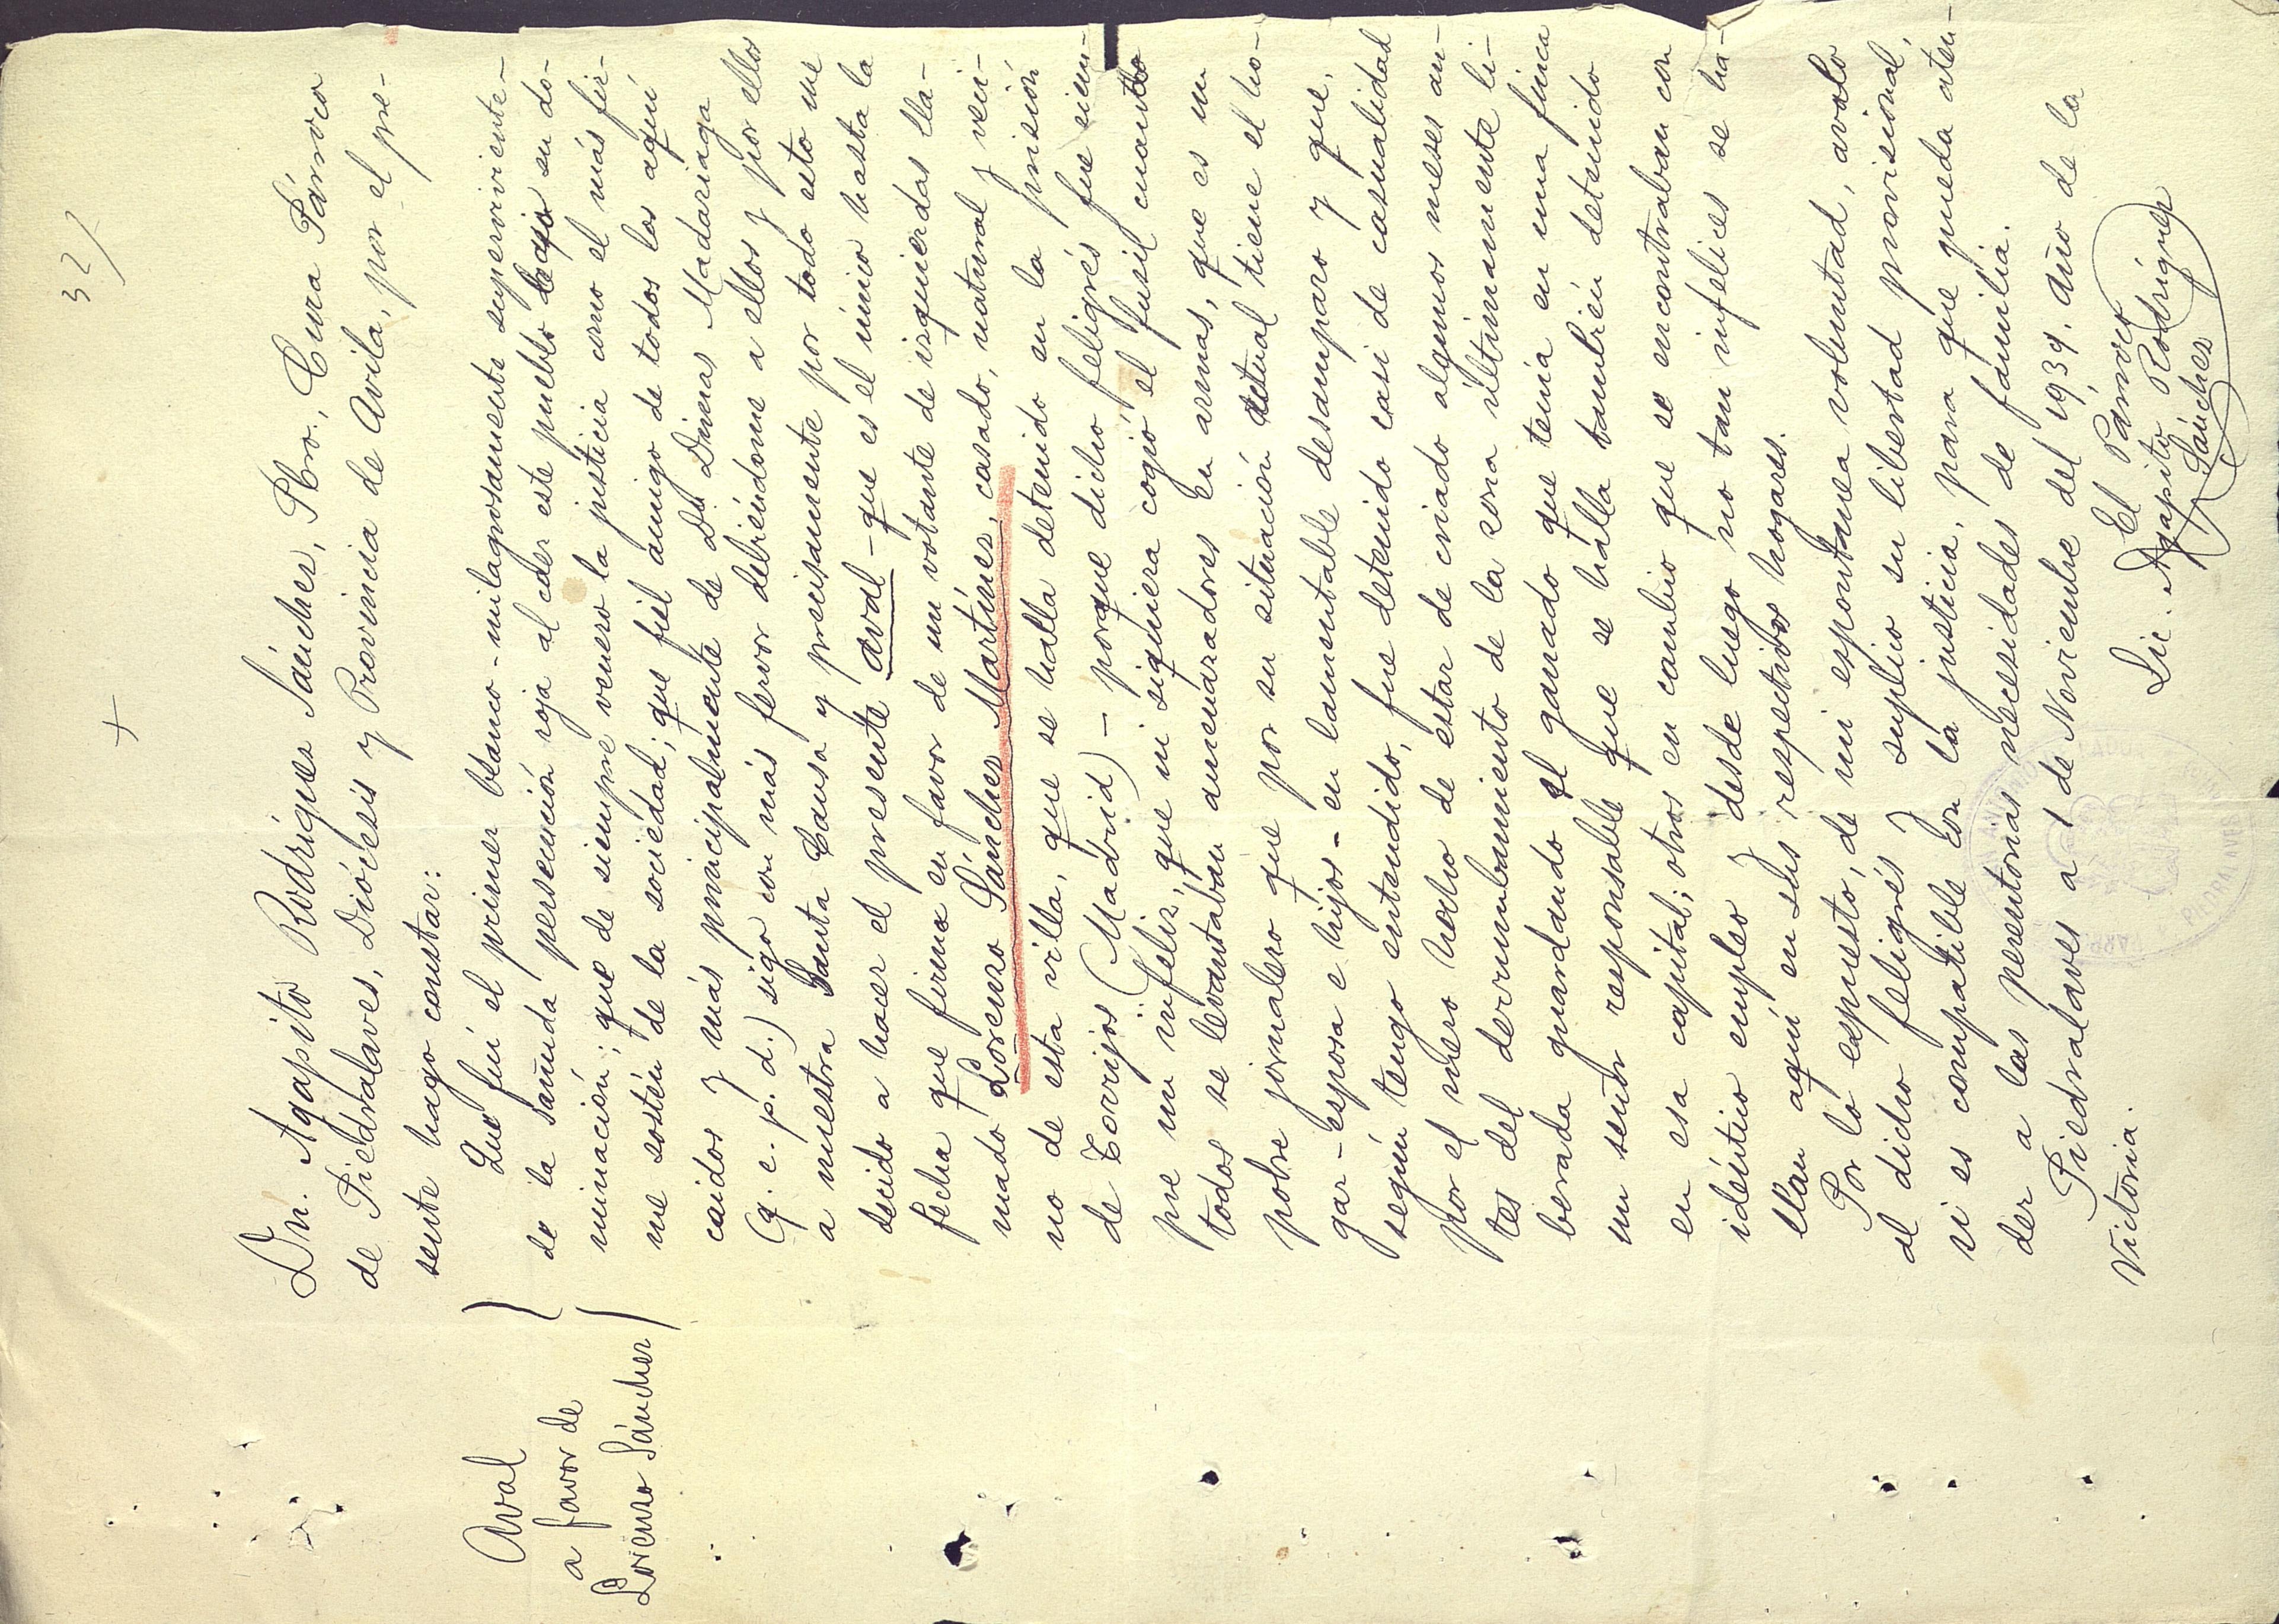 32)
+
Dn. Agapito Rodríguez Sánchez, Pbro., Cura Párroco
de Piedralaves, Diócesis y Provincia de Avila, por el pre-
sente hago constar:
Aval
a favor de
Lorenzo Sánchez
Que fuí el primer blanco - milagrosamente superviviente -
de la sañuda persecución roja al caer este pueblo bajo su do-
minación; que de siempre venero la justicia como el más fir-
me sostén de la sociedad; que fiel amigo de todos los aquí
caidos y más principalmente de Dn. Dimas Madariaga
(q. e. p. d.) sigo con más fervor debiéndome a ellos y por ellos
a nuestra Santa Causa y precisamente por todo esto me
decido a hacer el presente aval - que es el único hasta la
fecha que firmo en favor de un votante de izquierdas lla-
mado Lorenzo Sánchez Martínez, casado, natural y veci-
no de esta villa, que se halla detenido en la prisión
de Torrijos (Madrid) - porque dicho feligrés fue siem-
pre un infeliz, que ni siquiera cogió el fusil cuando
todos se levantaban amenazadores en armas, que es un
pobre jornalero que por su situación actual tiene el ho-
gar - esposa e hijos - en lamentable desamparo y que,
según tengo entendido, fue detenido casi de casualidad
por el mero hecho de estar de criado algunos meses an-
tes del derrumbamiento de la zona últimamente li-
berada guardando el ganado que tenía en una finca
un señor responsable que se halla también detenido
en esa capital; otros en cambio que se encontraban con
idéntico empleo y desde luego no tan infelices se ha-
llan aquí en sus respectivos hogares.
Por lo expuesto, de mi espontánea voluntad, avalo
al dicho feligrés y suplico su libertad provisional,
si es compatible con la justicia, para que pueda aten-
der a las perentorias necesidades de familia.
Piedralaves a 1 de Noviembre del 1939. Año de la
Victoria.
El Párroco
Lic. Agapito Rodríguez
Sánchez
PIEDRALAVES